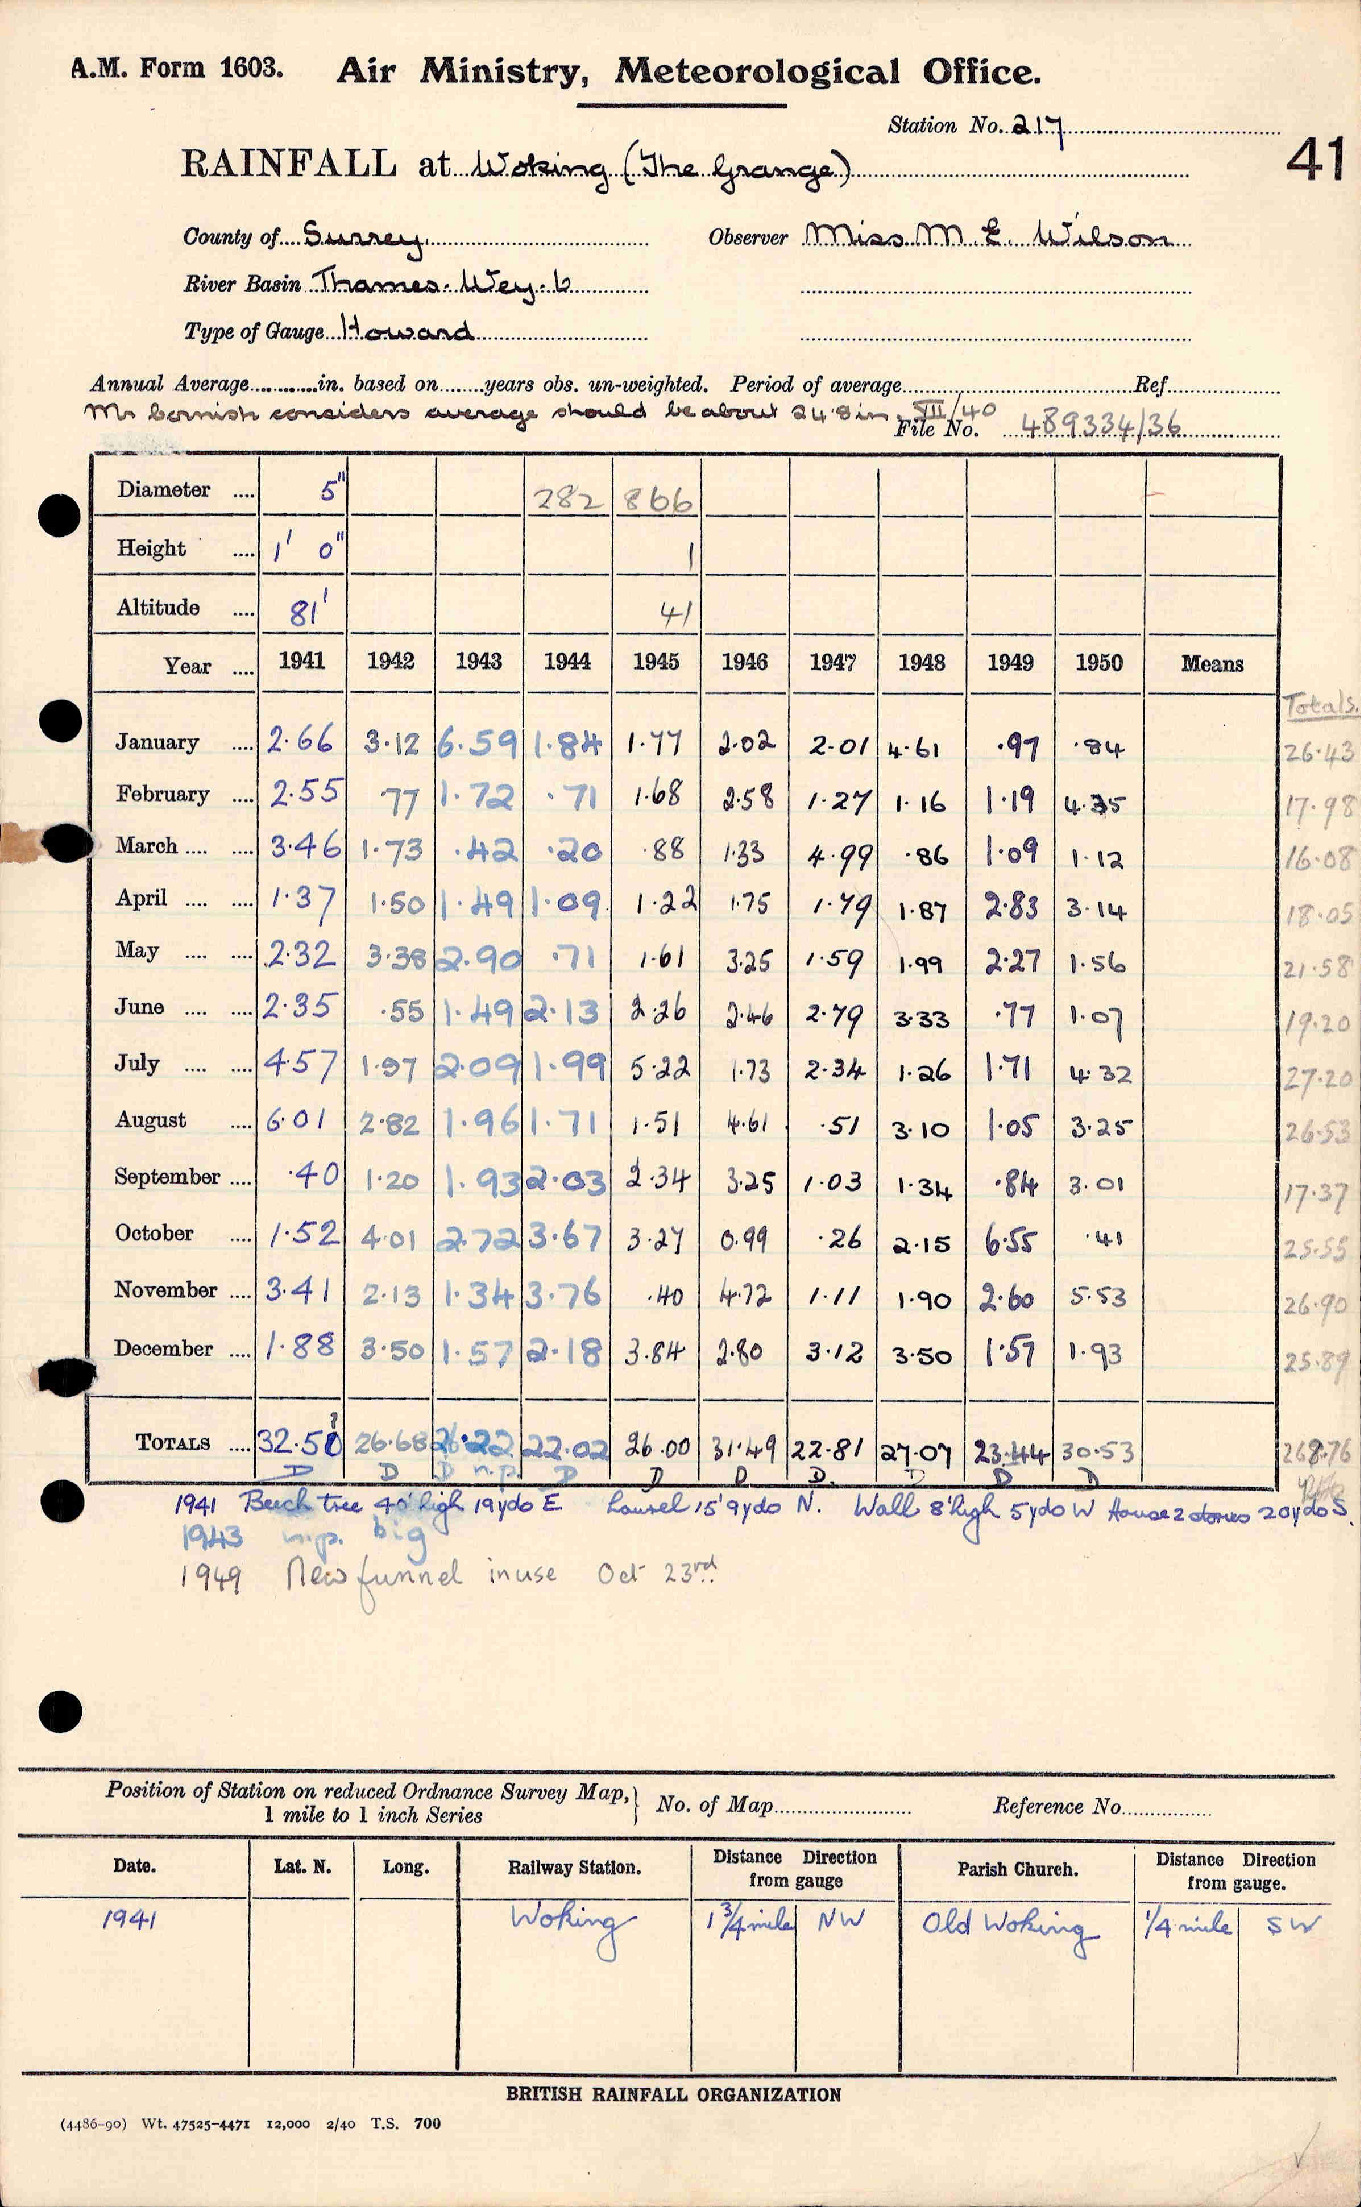 A.M. Form 1603. Air Ministry, Meteorological Office.
Station No. 217
41
RAINFALL at Woking (The Grange)
County of Surrey. Observer Miss M. E. Wilson
River Basin Thames. Wey. 6
Type of Gauge Howard
Annual Average............in. based on.......years obs. un-weighted. Period of average............Ref............
Mr Cornish considers average should be about 24.8 in. VII/40
File No. 489334/36
Diameter .... 5" 282 866
Height .... 1' 0" 1
Altitude .... 81' 41
Year .... 1941 1942 1943 1944 1945 1946 1947 1948 1949 1950 Means
Totals.
January .... 2.66 3.12 6.59 1.84 1.77 2.02 2.01 4.61 .97 .84 26.43
February .... 2.55 77 1.72 .71 1.68 2.58 1.27 1.16 1.19 4.35 17.98
March .... .... 3.46 1.73 .42 .20 .88 1.33 4.99 .86 1.09 1.12 16.08
April .... .... 1.37 1.50 1.49 1.09 1.22 1.75 1.79 1.87 2.83 3.14 18.05
May .... .... 2.32 3.38 2.90 .71 1.61 3.25 1.59 1.99 2.27 1.56 21.58
June .... .... 2.35 .55 1.49 2.13 2.26 2.46 2.79 3.33 .77 1.07 19.20
July .... .... 4.57 1.97 2.09 1.99 5.22 1.73 2.34 1.26 1.71 4.32 27.20
August .... 6.01 2.82 1.96 1.71 1.51 4.61 .51 3.10 1.05 3.25 26.53
September .... .40 1.20 1.93 2.03 2.34 3.25 1.03 1.34 .84 3.01 17.37
October .... 1.52 4.01 2.72 3.67 3.27 0.99 .26 2.15 6.55 .41 25.55
November .... 3.41 2.13 1.34 3.76 .40 4.72 1.11 1.90 2.60 5.53 26.90
December .... 1.88 3.50 1.57 2.18 3.84 2.80 3.12 3.50 1.57 1.93 25.89
TOTALS .... 32.50 26.68 26.22 22.02 26.00 31.49 22.81 27.07 23.44 30.53 268.76
D D D n.p. D D D D. D D D
1941 Beech tree 40' high 19 yds E Laurel 15' 9 yds N. Wall 8' high 5 yds W House 2 stories 20 yds S.
1943 n.p. big
1949 New funnel in use Oct 23rd
Position of Station on reduced Ordnance Survey Map, 1 mile to 1 inch Series } No. of Map............ Reference No............
Date. Lat. N. Long. Railway Station. Distance Direction from gauge Parish Church. Distance Direction from gauge.
1941 Woking 1 3/4 mile NW Old Woking 1/4 mile SW
BRITISH RAINFALL ORGANIZATION
(4486-90) Wt. 47525-4471 12,000 2/40 T.S. 700